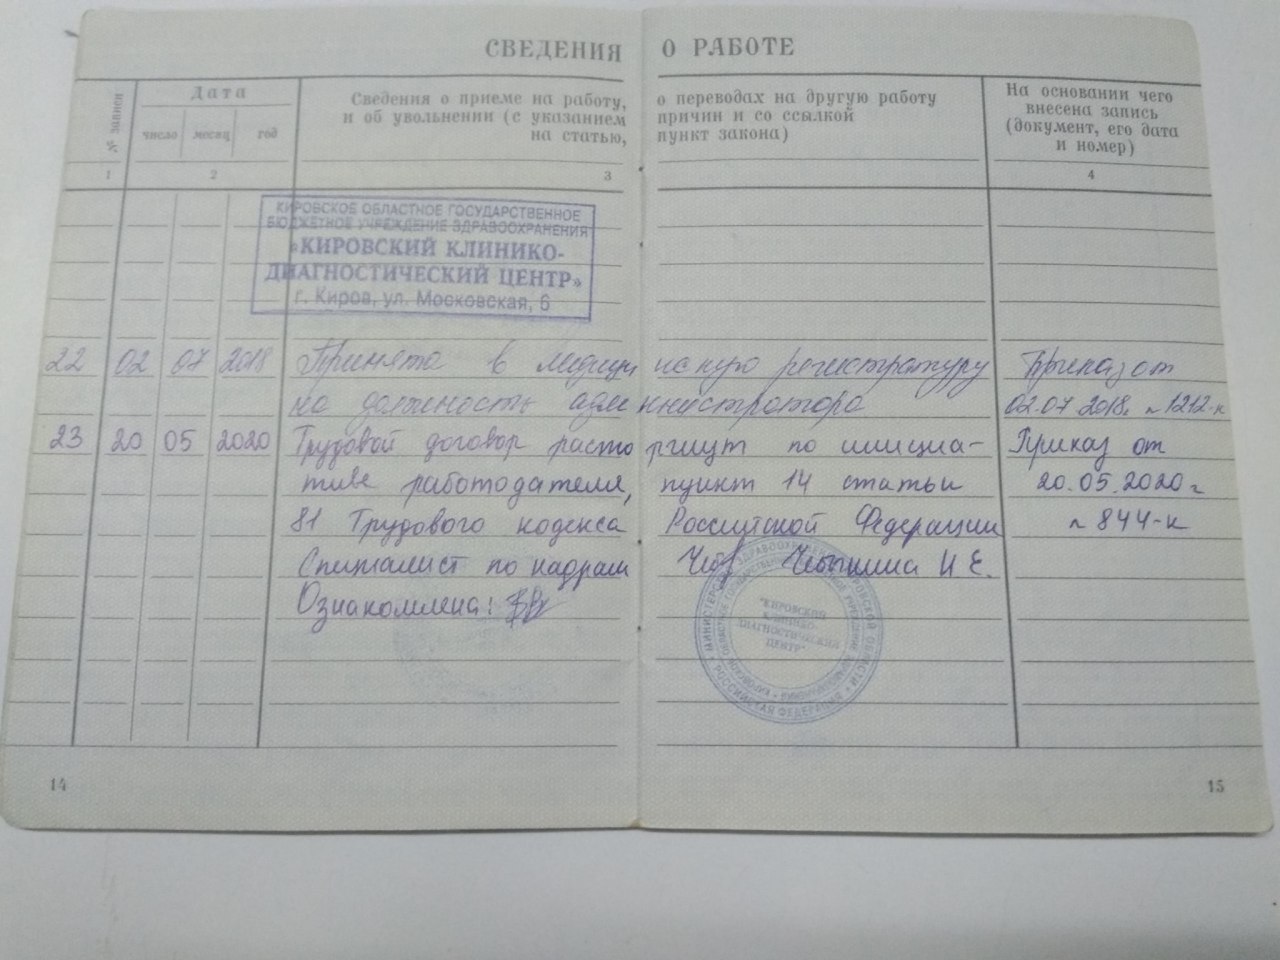 СВЕДЕНИЯ О РАБОТЕ
№ записи
Дата
число месяц год
Сведения о приеме на работу, о переводах на другую работу
и об увольнении (с указанием причин и со ссылкой
на статью, пункт закона)
На основании чего
внесена запись
(документ, его дата
и номер)
1 2 3 4
КИРОВСКОЕ ОБЛАСТНОЕ ГОСУДАРСТВЕННОЕ
БЮДЖЕТНОЕ УЧРЕЖДЕНИЕ ЗДРАВООХРАНЕНИЯ
«КИРОВСКИЙ КЛИНИКО-
ДИАГНОСТИЧЕСКИЙ ЦЕНТР»
г. Киров, ул. Московская, 6
22 02 07 2018 Принята в медицинскую регистратуру Приказ от
на должность администратора 02.07 2018г. № 1212-к
23 20 05 2020 Трудовой договор расторгнут по инициа- Приказ от
тиве работодателя, пункт 14 статьи 20.05.2020г
81 Трудового кодекса Российской Федерации № 844-к
Специалист по кадрам И Е.
Ознакомлена:
"КИРОВСКИЙ
КЛИНИКО-
ДИАГНОСТИЧЕСКИЙ
ЦЕНТР"
РОССИЙСКАЯ ФЕДЕРАЦИЯ
14 15